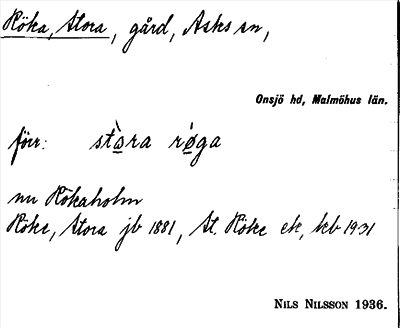 Röka, Stora, gård, Asks sn,
Onsjö hd, Malmöhus län.
förr: stò̱ra rø̱̀ga
nu Rökaholm
Röke, Stora jb 1881, St. Röke ek, kb 1931
NILS NILSSON 1936.